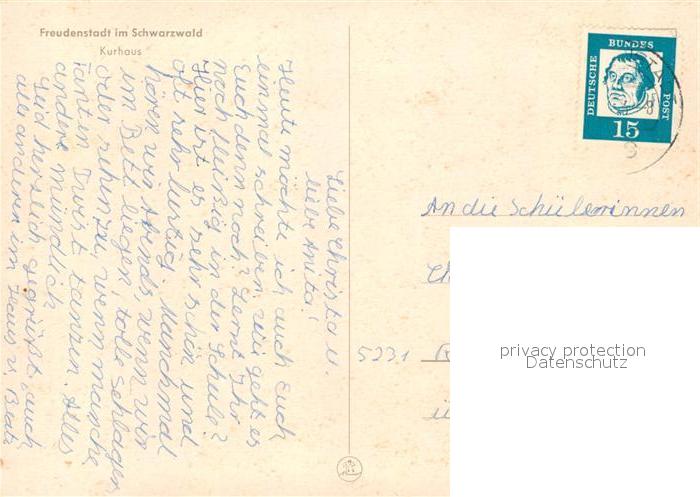 Freudenstadt im Schwarzwald
Kurhaus
Liebe Christa u.
liebe Anita!
Heute möchte ich auch Euch
einmal schreiben, wie geht es
Euch denn noch? Lernt Ihr
noch fleißig in der Schule?
Hier ist es sehr schön und
oft sehr lustig. Manchmal
hören wir Abends, wenn wir
im Bett liegen, tolle Schlager,
oder sehen zu, wenn manche
Tanten Twist tanzen. Alles
andere mündlich
Seid herzlich gegrüßt, auch
alle anderen im Haus v.
DEUTSCHE
BUNDES
POST
15
An die Schülerinnen
5231
privacy protection
Datenschutz